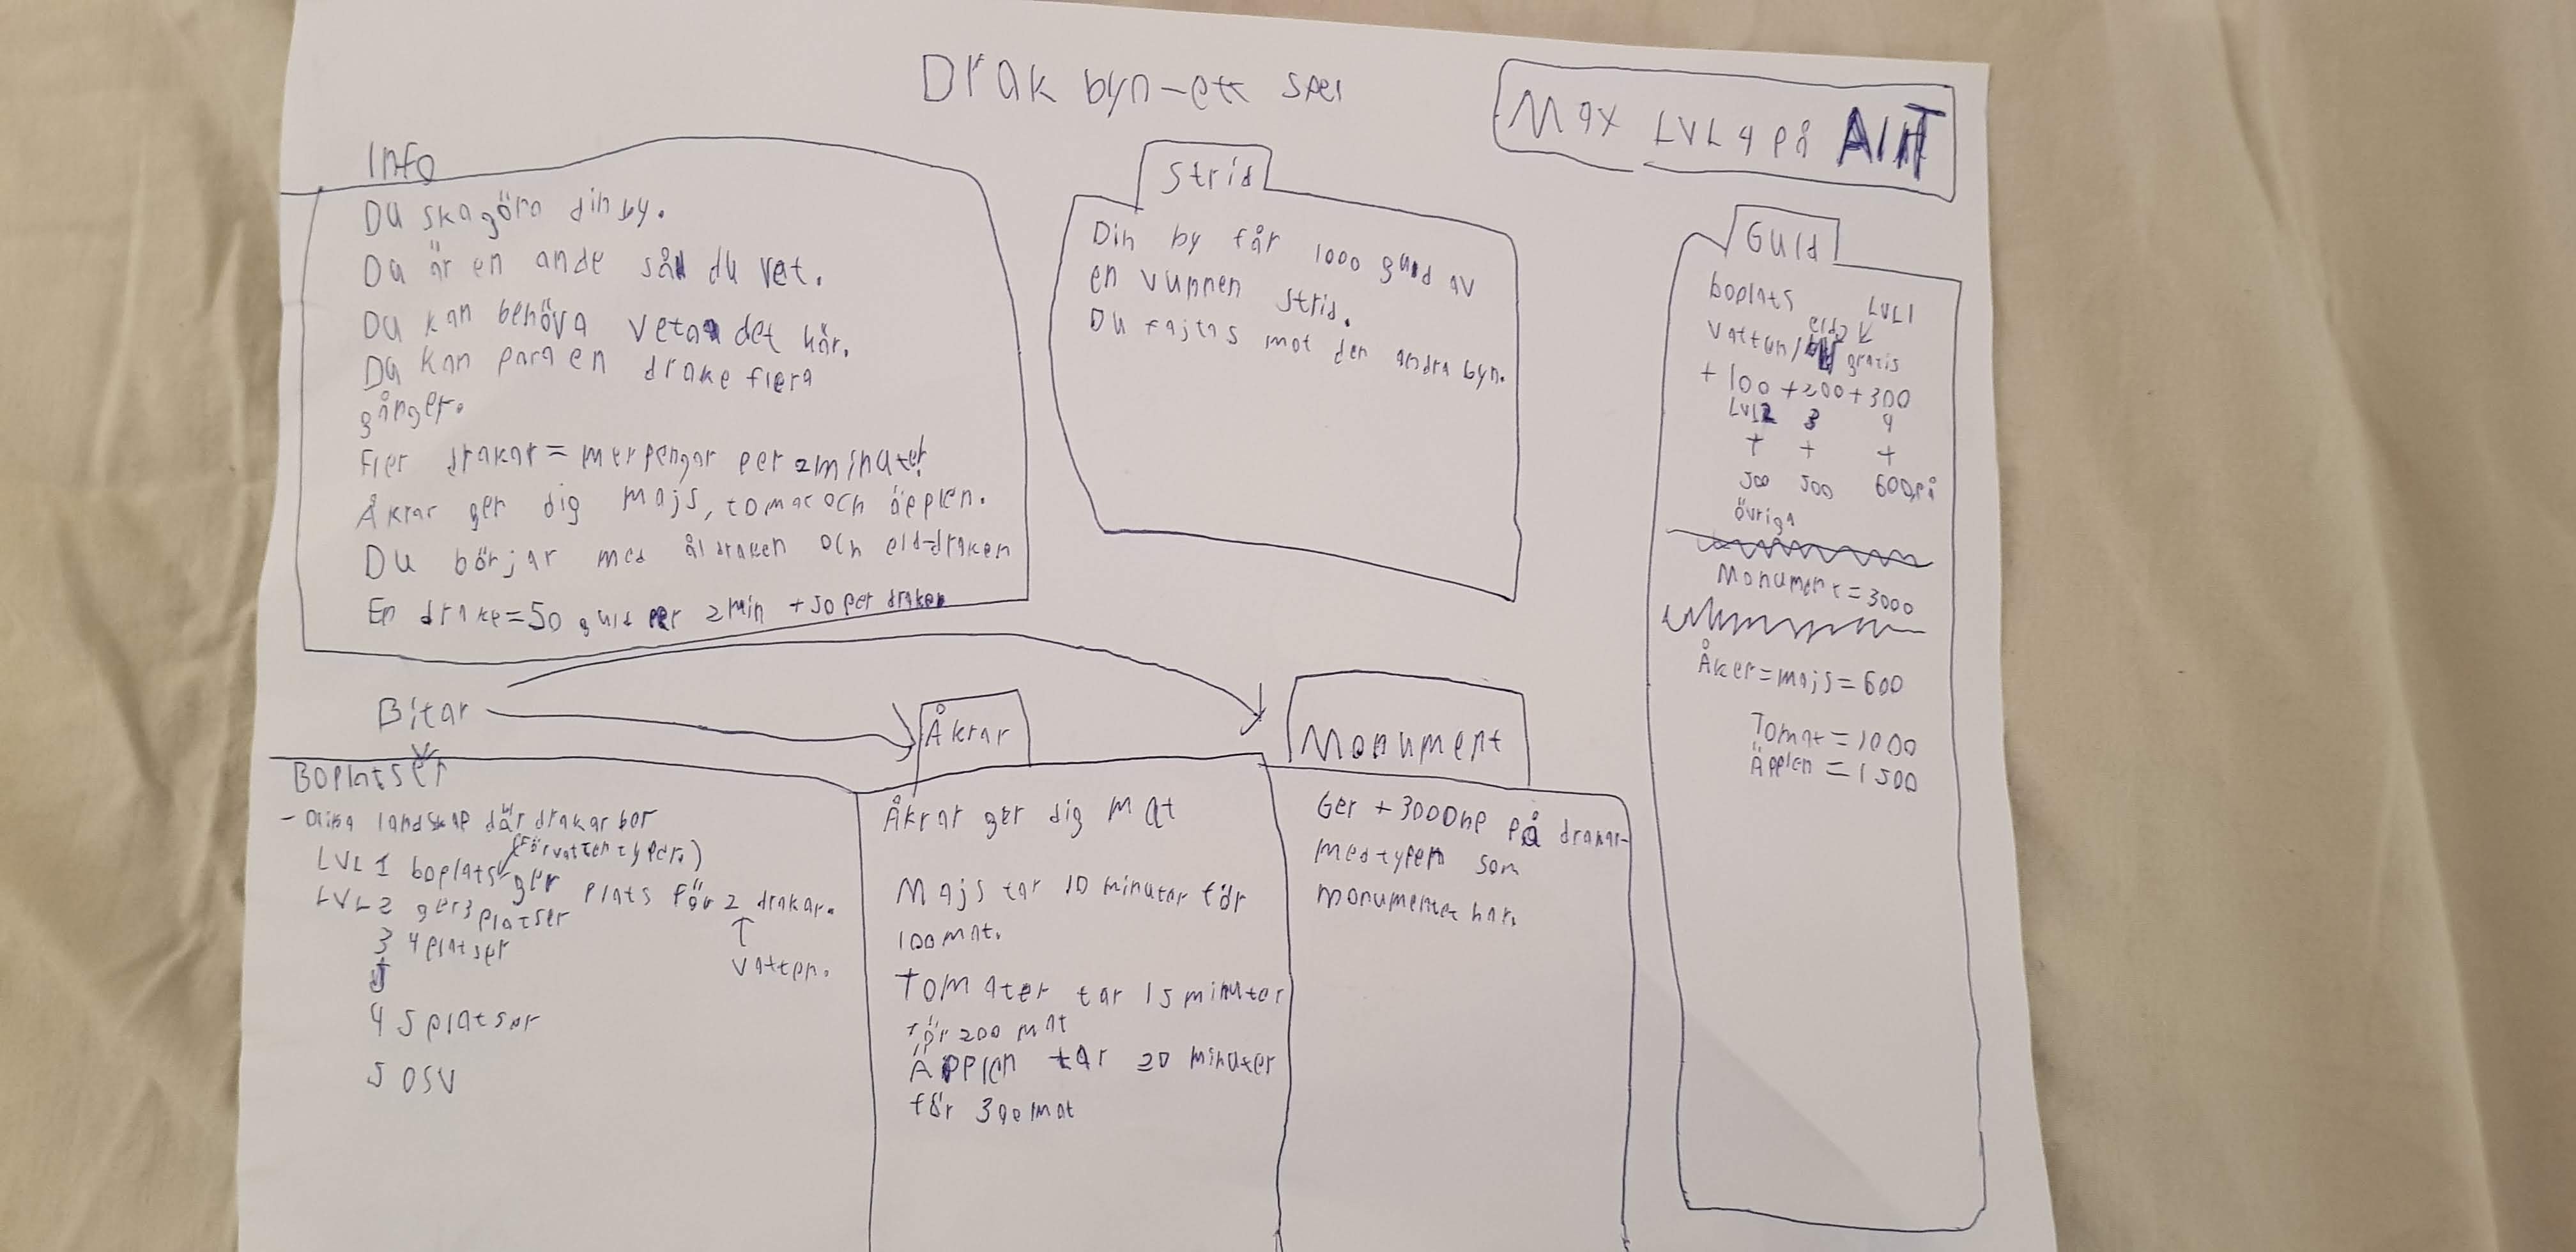 Drak byn-ett spel
Max LVL 4 på Allt
Info
Du ska göra din by.
Du är en ande så du vet.
Du kan behöva veta det här.
Du kan para en drake flera
gånger.
Fler drakar = mer pengar per 2 minuter!
Åkrar ger dig majs, tomat och äpplen.
Du börjar med åldraken och eld-draken
En drake=50 guld per 2 min +50 per draken
Strid
Din by får 1000 guld av
en vunnen strid.
Du fajtas mot den andra byn.
Guld
boplats LVL1
vatten/eld gratis
+100 +200 +300
LVL2 3 4
+ + +
500 500 600 på
övriga
Monument=3000
Åker=majs=600
Tomat=1000
Äpplen=1500
Bitar
Boplatser
- Olika landskap där drakar bor
LVL 1 boplats (för vattentypen.) ger plats för 2 drakar.
LVL 2 ger 3 platser
3 4 platser
vatten.
4 5 platser
5 osv
Åkrar
Åkrar ger dig mat
Majs tar 10 minuter för
100 mat.
Tomater tar 15 minuter
för 200 mat
Äpplen tar 20 minuter
för mat
Monument
Ger +3000hp på drakar
med typen som
monumentet har.